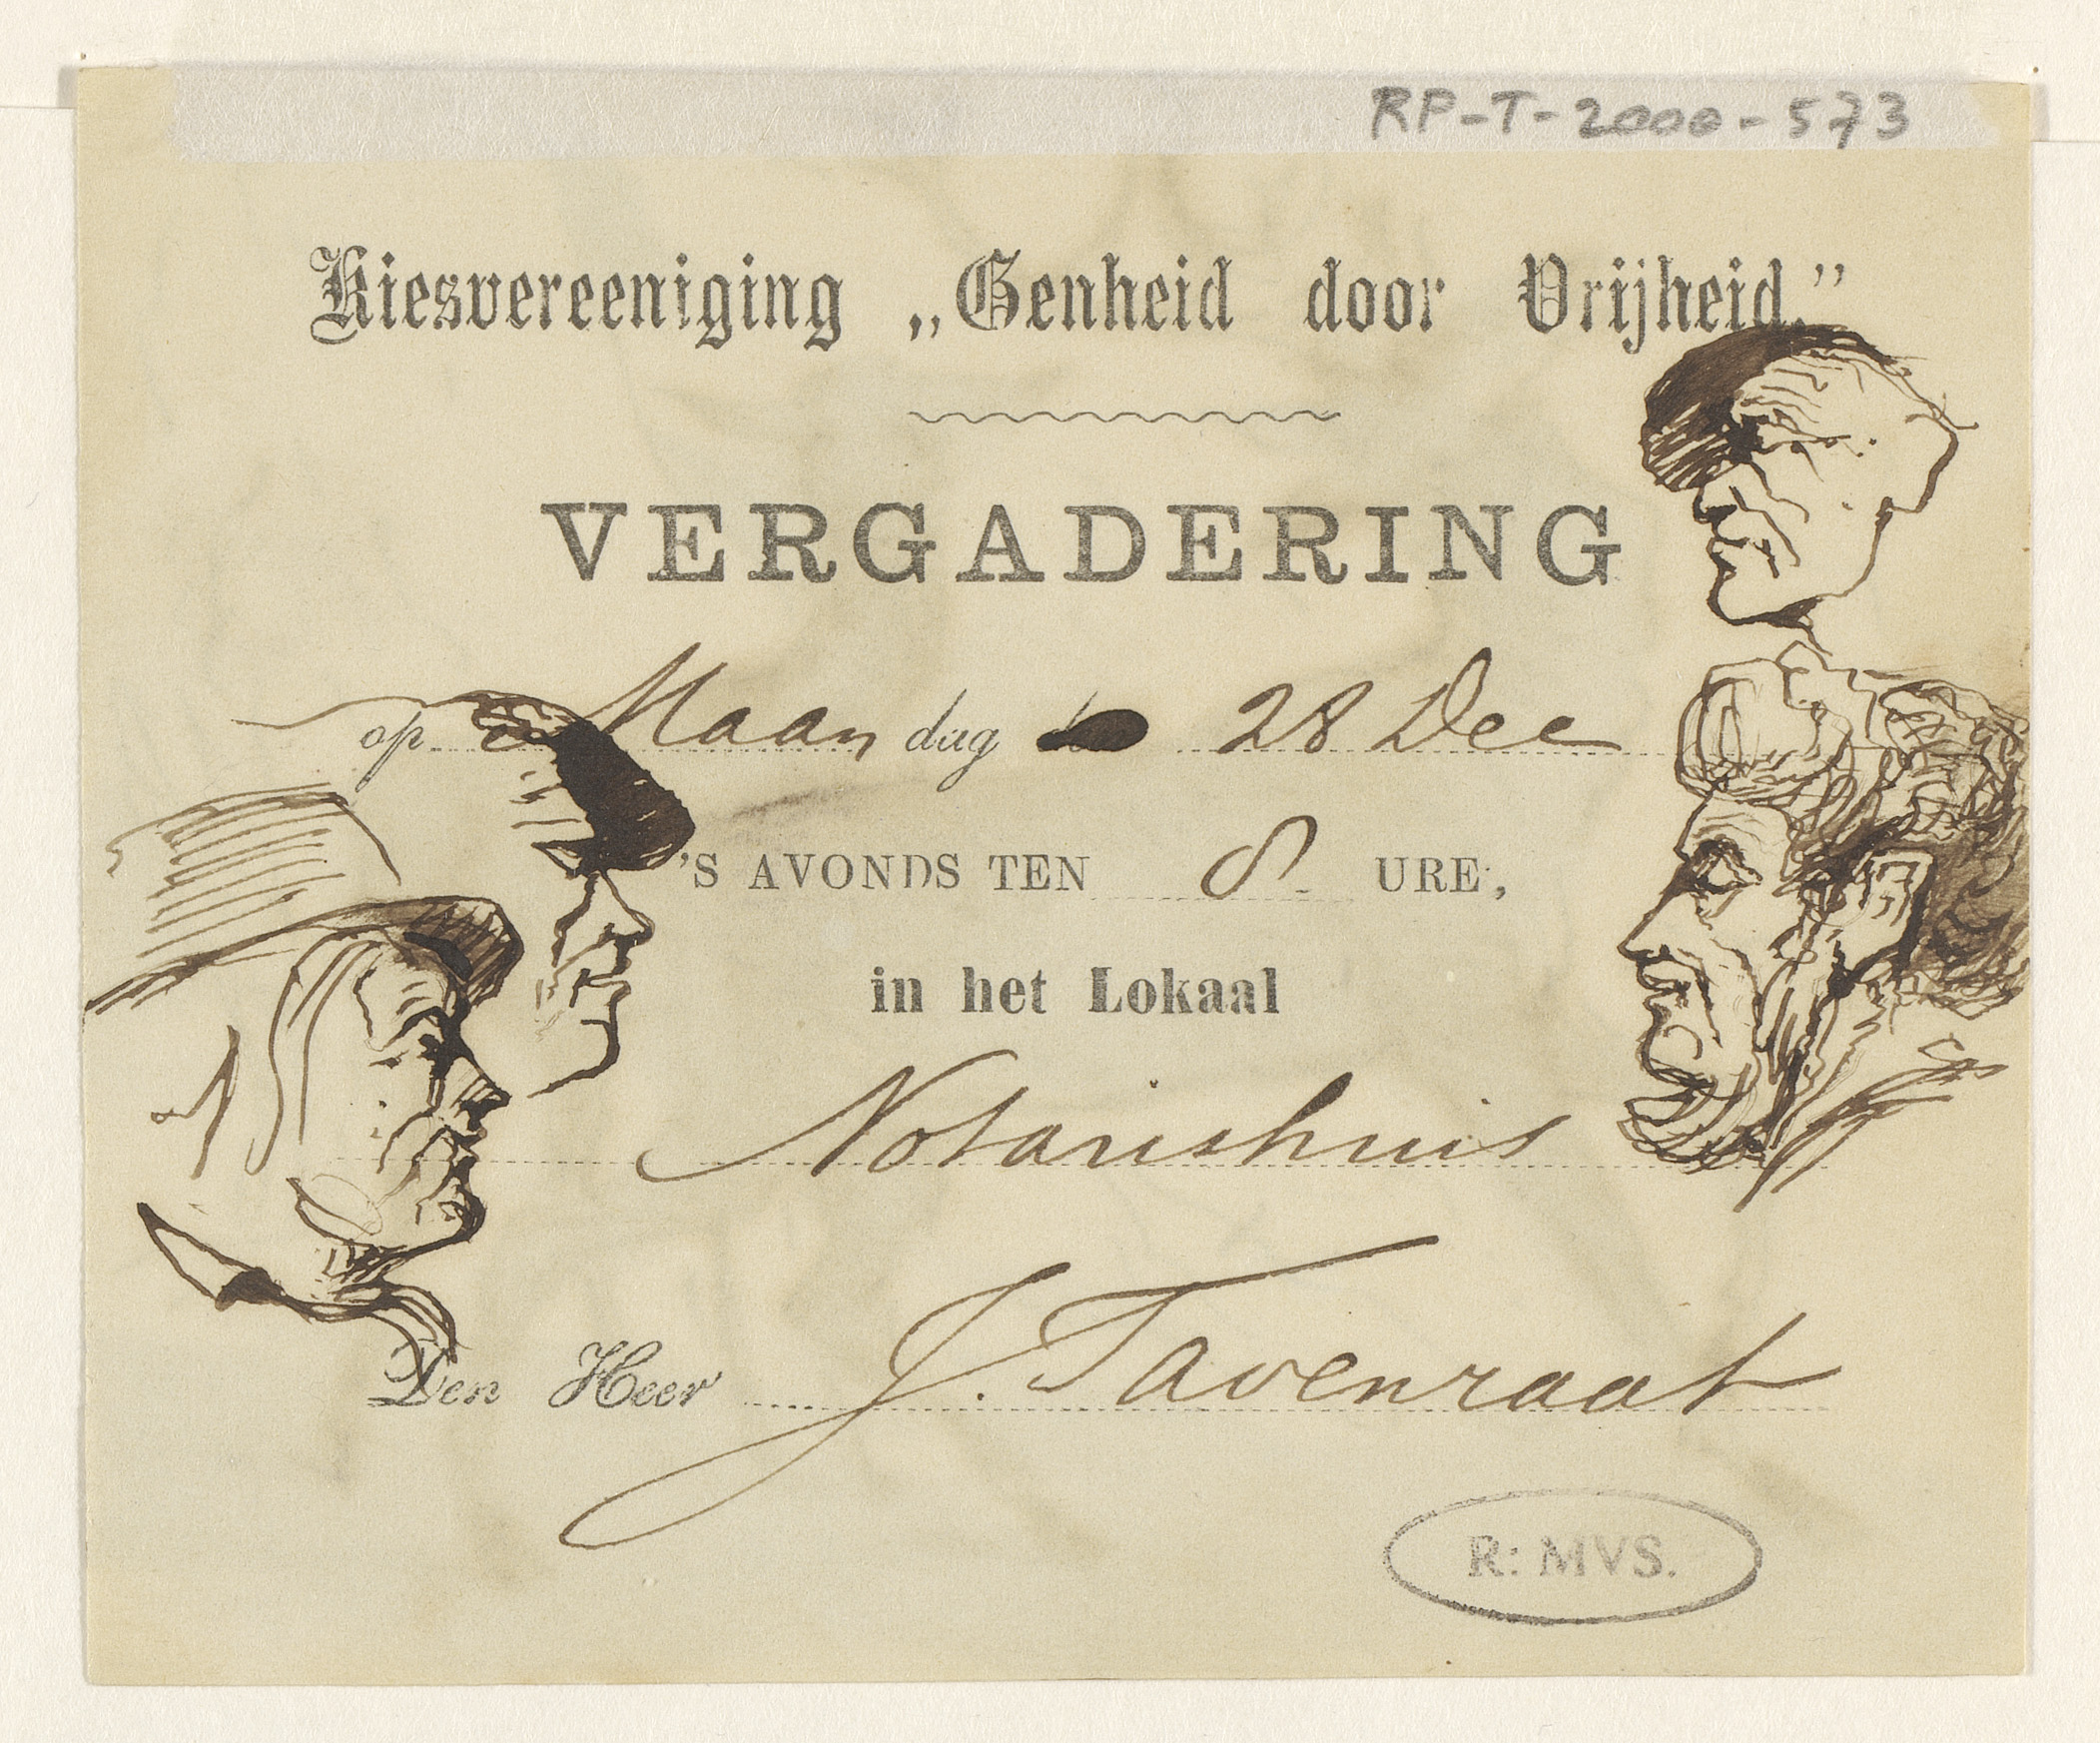 RP-T-2000-573
Kiesvereeniging „Genheid door Vrijheid."
VERGADERING
op Maandag 28 Dec
'S AVONDS TEN 8 URE,
in het Lokaal
Notarishuis
Den Heer J. Tavenraat
R: MVS.